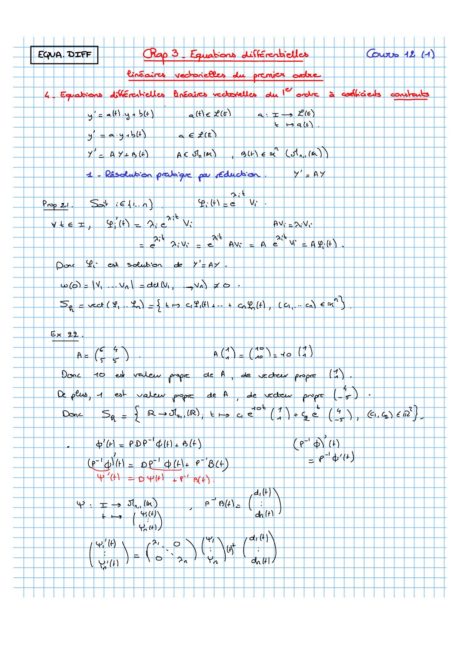 EQUA. DIFF
Chap 3. Equations différentielles
Cours 12 (1)
linéaires vectorielles du premier ordre
4. Equations différentielles linéaires vectorielles du 1er ordre à coefficients constants
y' = a(t).y + b(t)    a(t) ∈ L(E)    a : I → L(E)
t ↦ a(t).
y' = a.y + b(t)    a ∈ L(E)
Y' = AY + B(t)    A ∈ Mn(K) , B(t) ∈ Kⁿ (Mn,1(K))
1 - Résolution pratique par réduction.    Y' = AY
Prop 21.    Soit i ∈ {1..n}    φi(t) = e^{λit} Vi
∀ t ∈ I, φi'(t) = λi e^{λit} Vi    AVi = λiVi
= e^{λit} λiVi = e^{λit} AVi = A e^{λit} Vi = Aφi(t).
Donc φi est solution de Y' = AY.
ω(0) = |V1 ... Vn| = det(V1, ..., Vn) ≠ 0.
SH = vect(φ1 ... φn) = { t ↦ c1φ1(t) + ... + cnφn(t), (c1, ... cn) ∈ Kⁿ }
Ex 22.
A = (6 4
5 5)    A (1
1) = (10
10) = 10 (1
1)
Donc 10 est valeur propre de A, de vecteur propre (1
1).
De plus, 1 est valeur propre de A, de vecteur propre (4
-5).
Donc SH = { R → M2,1(R), t ↦ c1 e^{10t} (1
1) + c2 e^t (4
-5), (c1, c2) ∈ R² }.
. φ'(t) = PDP⁻¹ φ(t) + B(t)    (P⁻¹ φ)'(t)
(P⁻¹ φ)'(t) = DP⁻¹ φ(t) + P⁻¹ B(t)    = P⁻¹ φ'(t)
Ψ'(t) = DΨ(t) + P⁻¹ B(t)
Ψ : I → Mn,1(K) , P⁻¹ B(t) = (d1(t)
⋮
dn(t))
t ↦ (Ψ1(t)
⋮
Ψn(t))
(Ψ1'(t)
⋮
Ψn'(t)) = (λ1 0
⋱
0 λn) (Ψ1
⋮
Ψn)(t) + (d1(t)
⋮
dn(t))